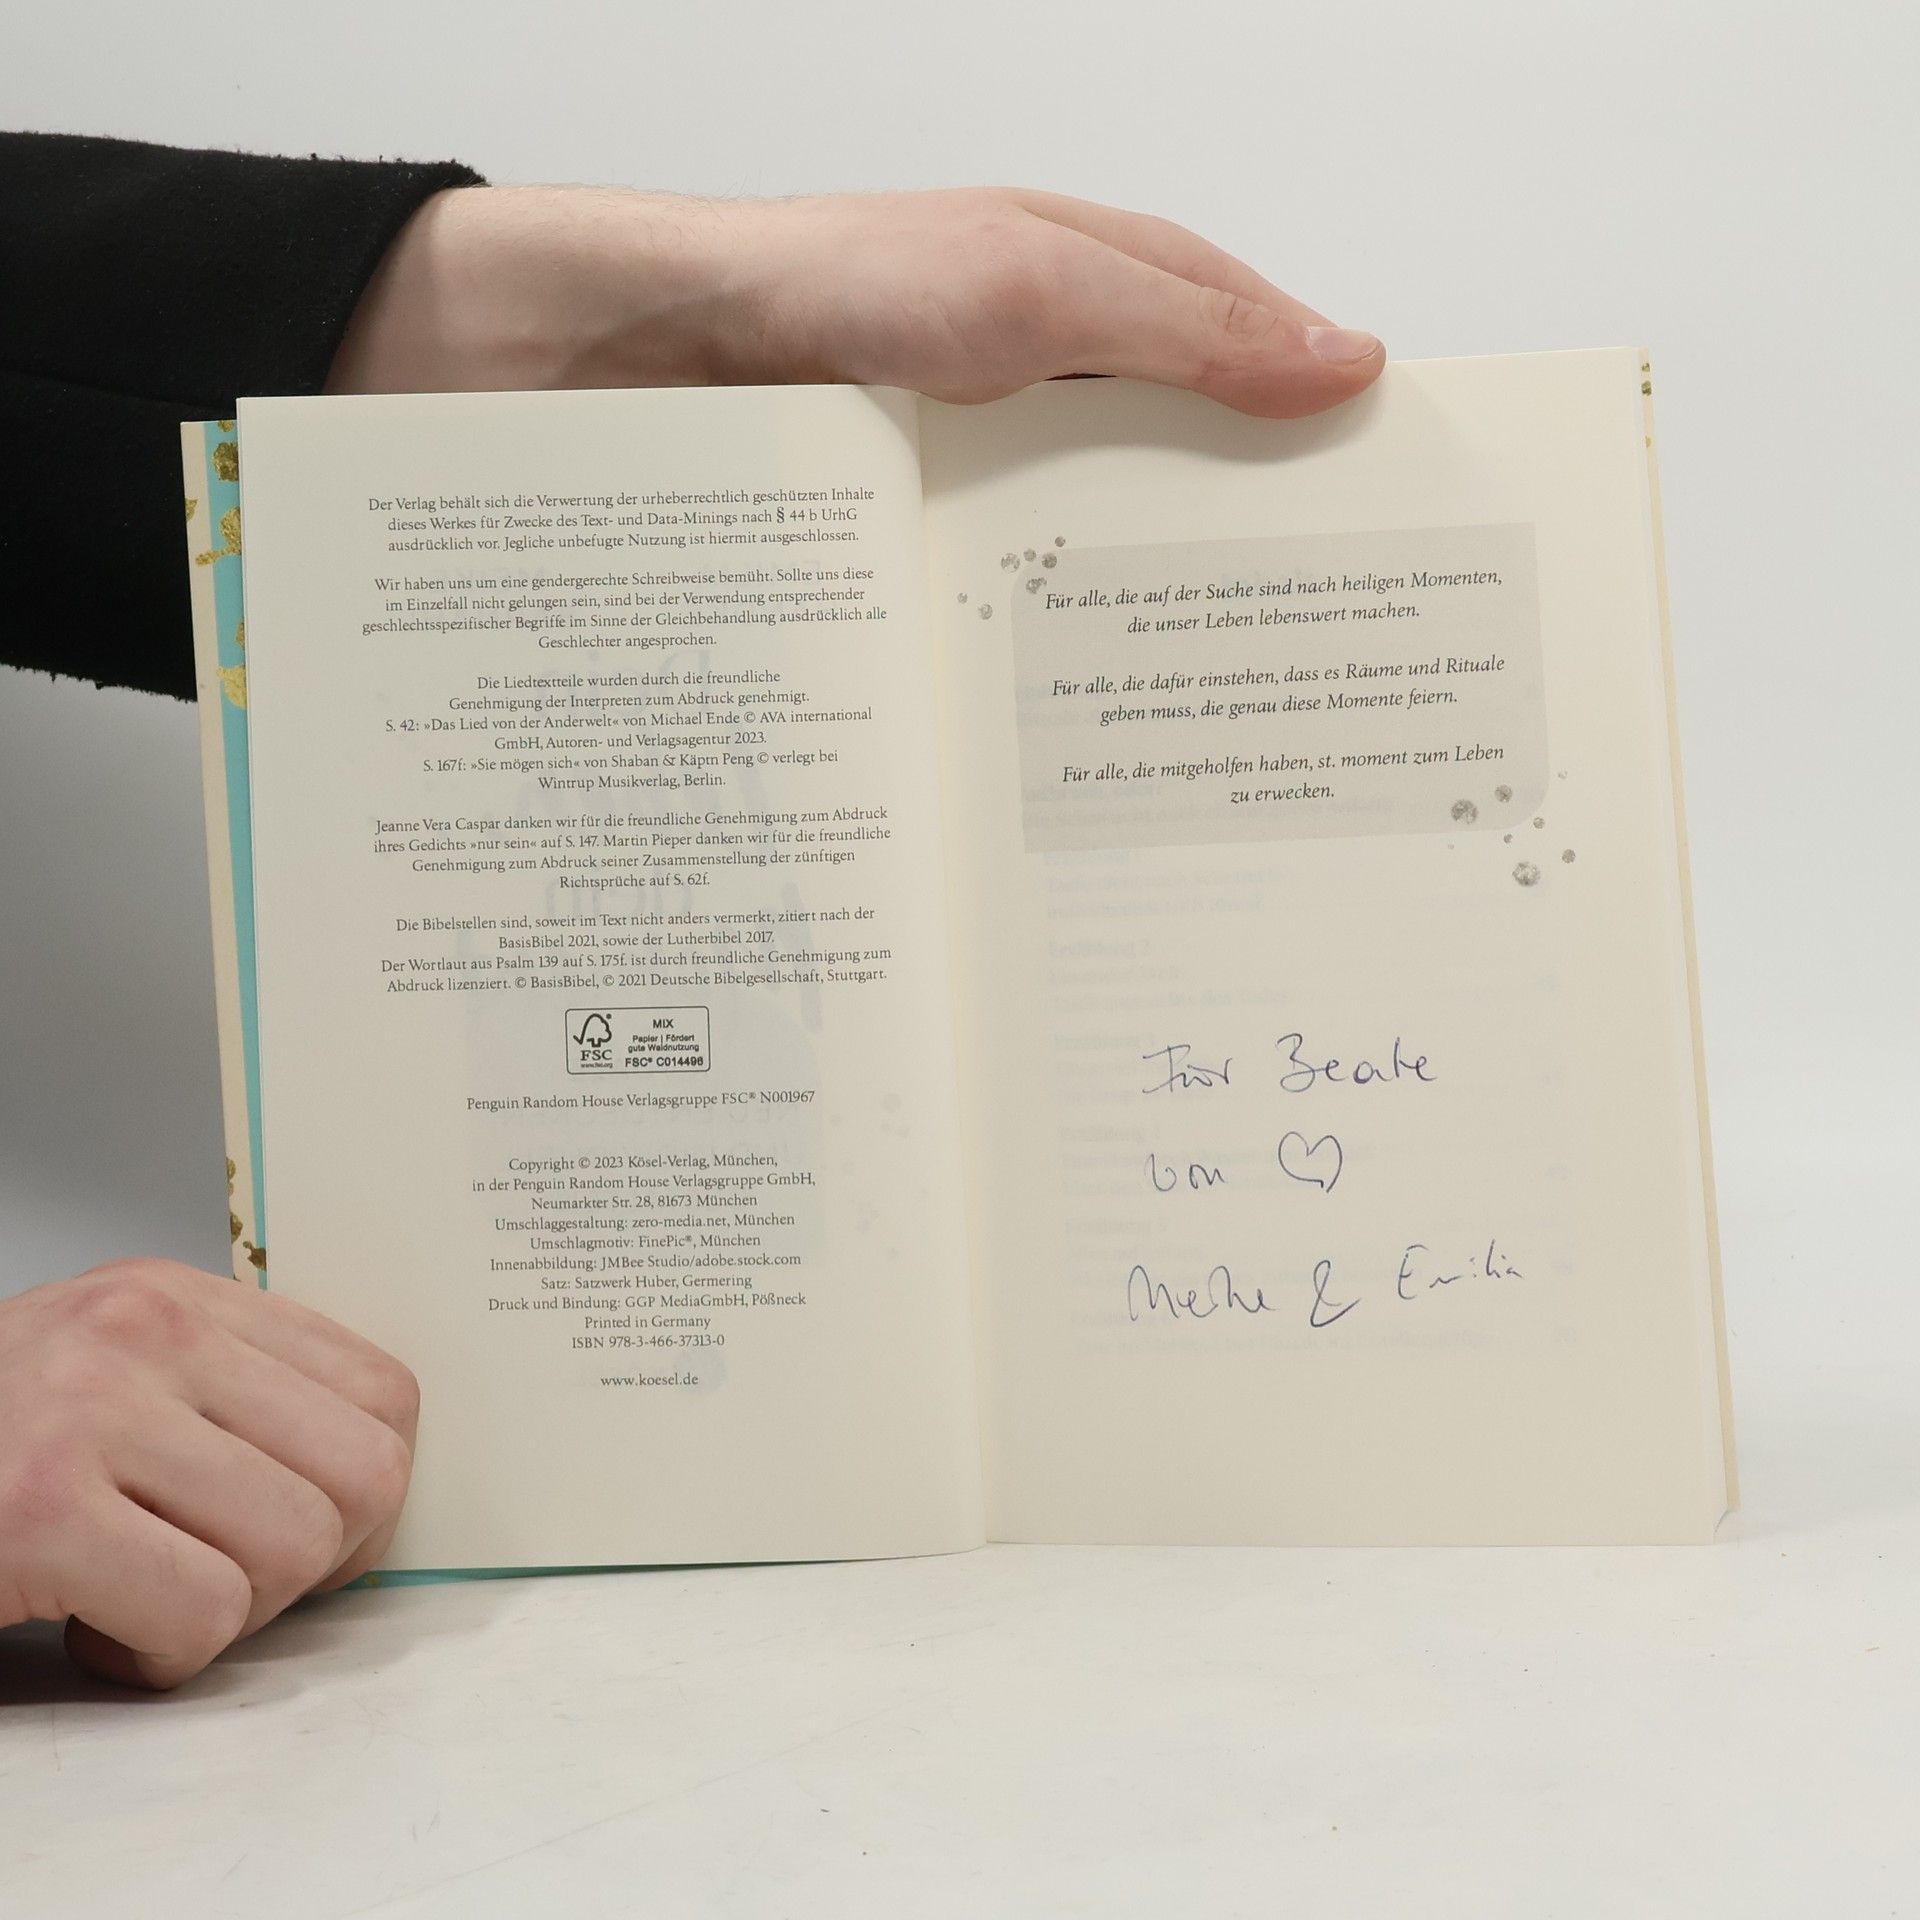 Der Verlag behält sich die Verwertung der urheberrechtlich geschützten Inhalte
dieses Werkes für Zwecke des Text- und Data-Minings nach § 44 b UrhG
ausdrücklich vor. Jegliche unbefugte Nutzung ist hiermit ausgeschlossen.
Wir haben uns um eine gendergerechte Schreibweise bemüht. Sollte uns diese
im Einzelfall nicht gelungen sein, sind bei der Verwendung entsprechender
geschlechtsspezifischer Begriffe im Sinne der Gleichbehandlung ausdrücklich alle
Geschlechter angesprochen.
Die Liedtextteile wurden durch die freundliche
Genehmigung der Interpreten zum Abdruck genehmigt.
S. 42: »Das Lied von der Anderwelt« von Michael Ende © AVA international
GmbH, Autoren- und Verlagsagentur 2023.
S. 167f: »Sie mögen sich« von Shaban & Käptn Peng © verlegt bei
Wintrup Musikverlag, Berlin.
Jeanne Vera Caspar danken wir für die freundliche Genehmigung zum Abdruck
ihres Gedichts »nur sein« auf S. 147. Martin Pieper danken wir für die freundliche
Genehmigung zum Abdruck seiner Zusammenstellung der zünftigen
Richtsprüche auf S. 62f.
Die Bibelstellen sind, soweit im Text nicht anders vermerkt, zitiert nach der
BasisBibel 2021, sowie der Lutherbibel 2017.
Der Wortlaut aus Psalm 139 auf S. 175f. ist durch freundliche Genehmigung zum
Abdruck lizenziert. © BasisBibel, © 2021 Deutsche Bibelgesellschaft, Stuttgart.
FSC
www.fsc.org
MIX
Papier | Fördert
gute Waldnutzung
FSC® C014496
Penguin Random House Verlagsgruppe FSC® N001967
Copyright © 2023 Kösel-Verlag, München,
in der Penguin Random House Verlagsgruppe GmbH,
Neumarkter Str. 28, 81673 München
Umschlaggestaltung: zero-media.net, München
Umschlagmotiv: FinePic®, München
Innenabbildung: JMBee Studio/adobe.stock.com
Satz: Satzwerk Huber, Germering
Druck und Bindung: GGP MediaGmbH, Pößneck
Printed in Germany
ISBN 978-3-466-37313-0
www.koesel.de
Für alle, die auf der Suche sind nach heiligen Momenten,
die unser Leben lebenswert machen.
Für alle, die dafür einstehen, dass es Räume und Rituale
geben muss, die genau diese Momente feiern.
Für alle, die mitgeholfen haben, st. moment zum Leben
zu erwecken.
Für Beate
von ♡
Meike & Emilia